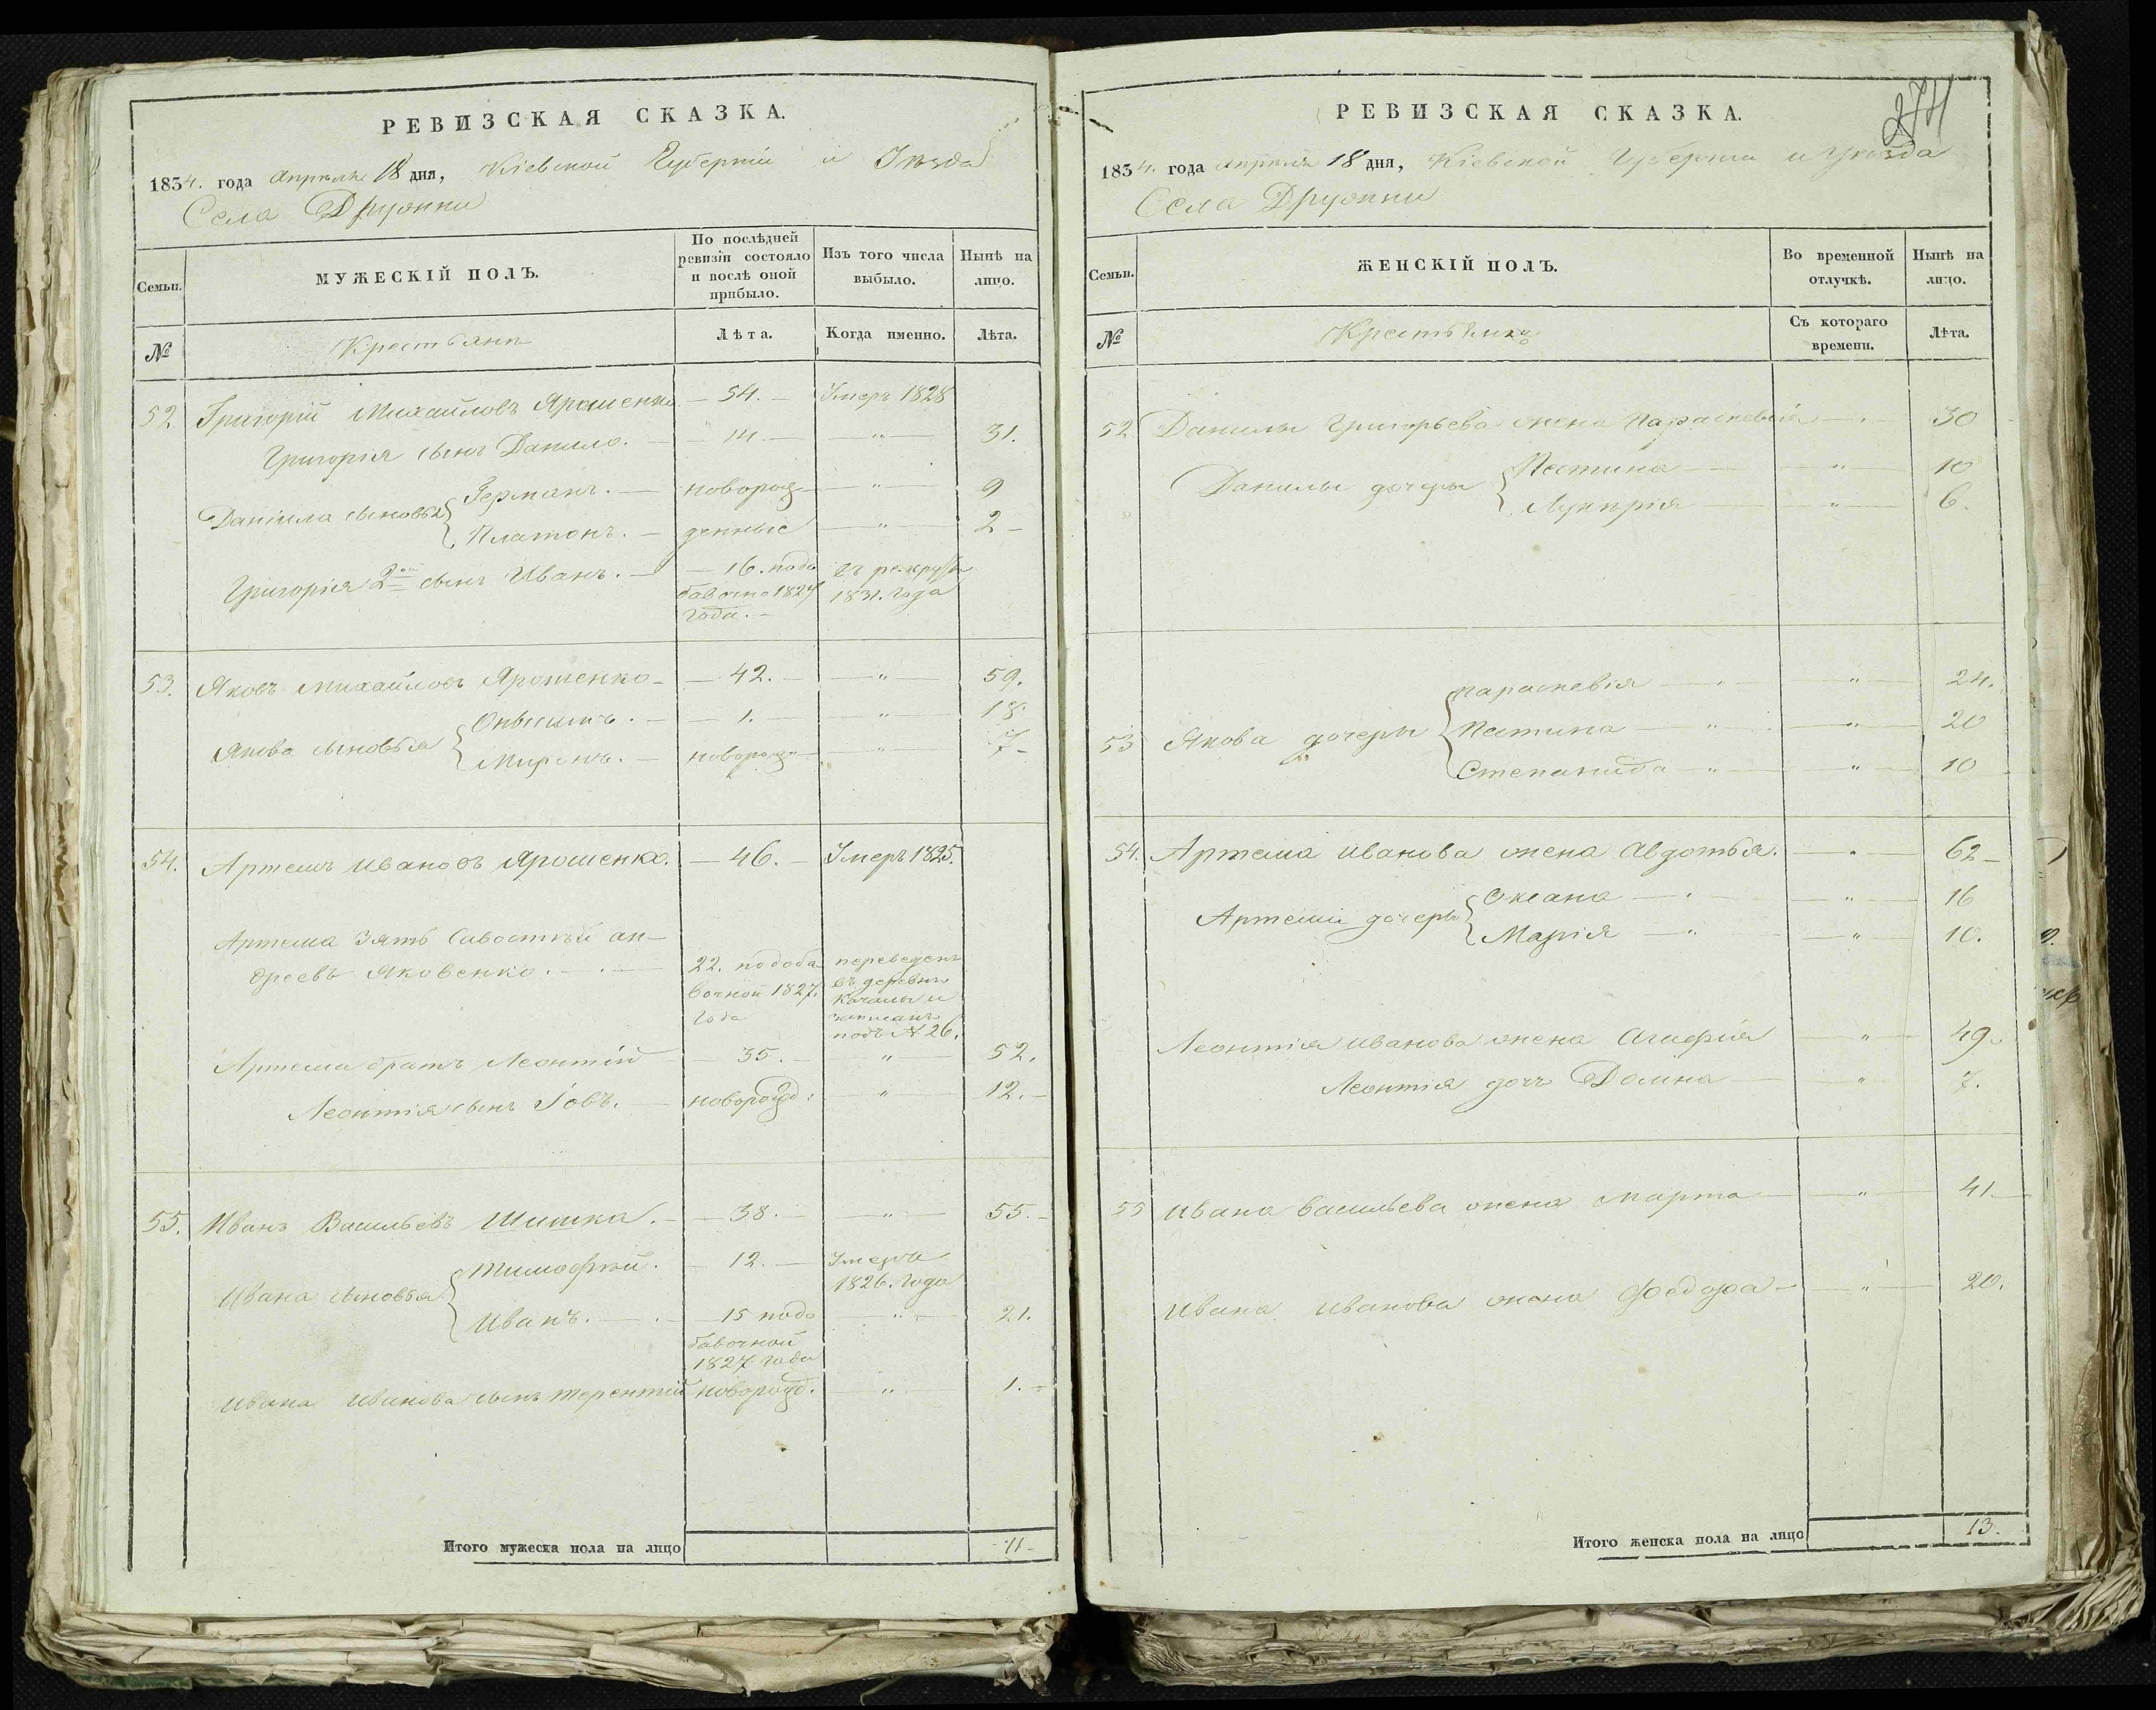 РЕВИЗСКАЯ СКАЗКА.
1834. года Апрѣля 18 дня, Кіевской Губерніи и Уѣзда
Села Дружни
Семьи. МУЖЕСКІЙ ПОЛЪ. По послѣдней ревизіи состояло и послѣ оной прибыло. Изъ того числа выбыло. Нынѣ на лицо.
№ Крестьяне Лѣта. Когда именно. Лѣта.
52 Григорій Михайловъ Ярошенко — 54. — Умеръ 1828
Григорія сынъ Данило. — 14. — „ — 31.
Даніила сыновья { Германъ. — новорож — „ — 9
Платонъ. — денные — „ — 2 —
Григорія 2ой сынъ Иванъ. — 16. подо въ рекруты
бавочно 1827 1831. года
года. —
53. Яковъ Михайловъ Ярошенко — 42. — „ 59.
Якова сыновья { Онисимъ. — 1. — „ 18.
Миронъ. — новорожд — „ 7 —
54. Артемъ Ивановъ Ярошенко. — 46. — Умеръ 1825.
Артема зять Савостѣй ан-
дреевъ Яковенко. — 22. подоба переведенъ
вочной 1827. въ деревню
года Качалы и
записанъ
подъ № 26.
Артема братъ Леонтій 35. — „ 52.
Леонтія сынъ Іовъ. — новорожд. „ 12. —
55. Иванъ Васильевъ Шитка. — 38. — „ — 55. —
Ивана сыновья { Тимофѣй. 12. — Умеръ
1826. года
Иванъ. — 15 подо — „ — 21.
бавочной
1827. года
Ивана Иванова сынъ Терентій новорожд. — „ 1. —
Итого мужеска пола на лицо 11 —
274
РЕВИЗСКАЯ СКАЗКА.
1834. года Апрѣля 18 дня, Кіевской Губерніи и Уѣзда
Села Дружни
Семьи. ЖЕНСКІЙ ПОЛЪ. Во временной отлучкѣ. Нынѣ на лицо.
№ Съ котораго времени. Лѣта.
52. Данилы Григорьева жена Параскевія — 30
Данилы дочеры { Устина — „ — 10
— „ — 6.
53 Якова дочеры { Параскевія — „ — „ — 24.
Устина — „ — „ — 20
Степанида — „ — „ — 10
54. Артема Иванова жена Авдотья. — „ — 62 —
Артема дочеры { Оксана — „ — 16
Марія — „ — „ — 10.
Леонтія Иванова жена Агафія — „ — 49.
Леонтія дочь Домна — „ — 7.
55 Ивана Васильева жена Марта — „ — 41. —
Ивана Иванова жена Федора — „ — 20.
Итого женска пола на лицо 13.